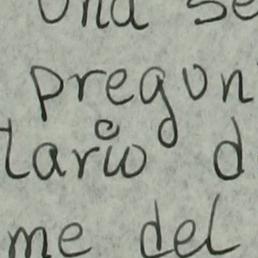 Una se
pregun
tario d
me del